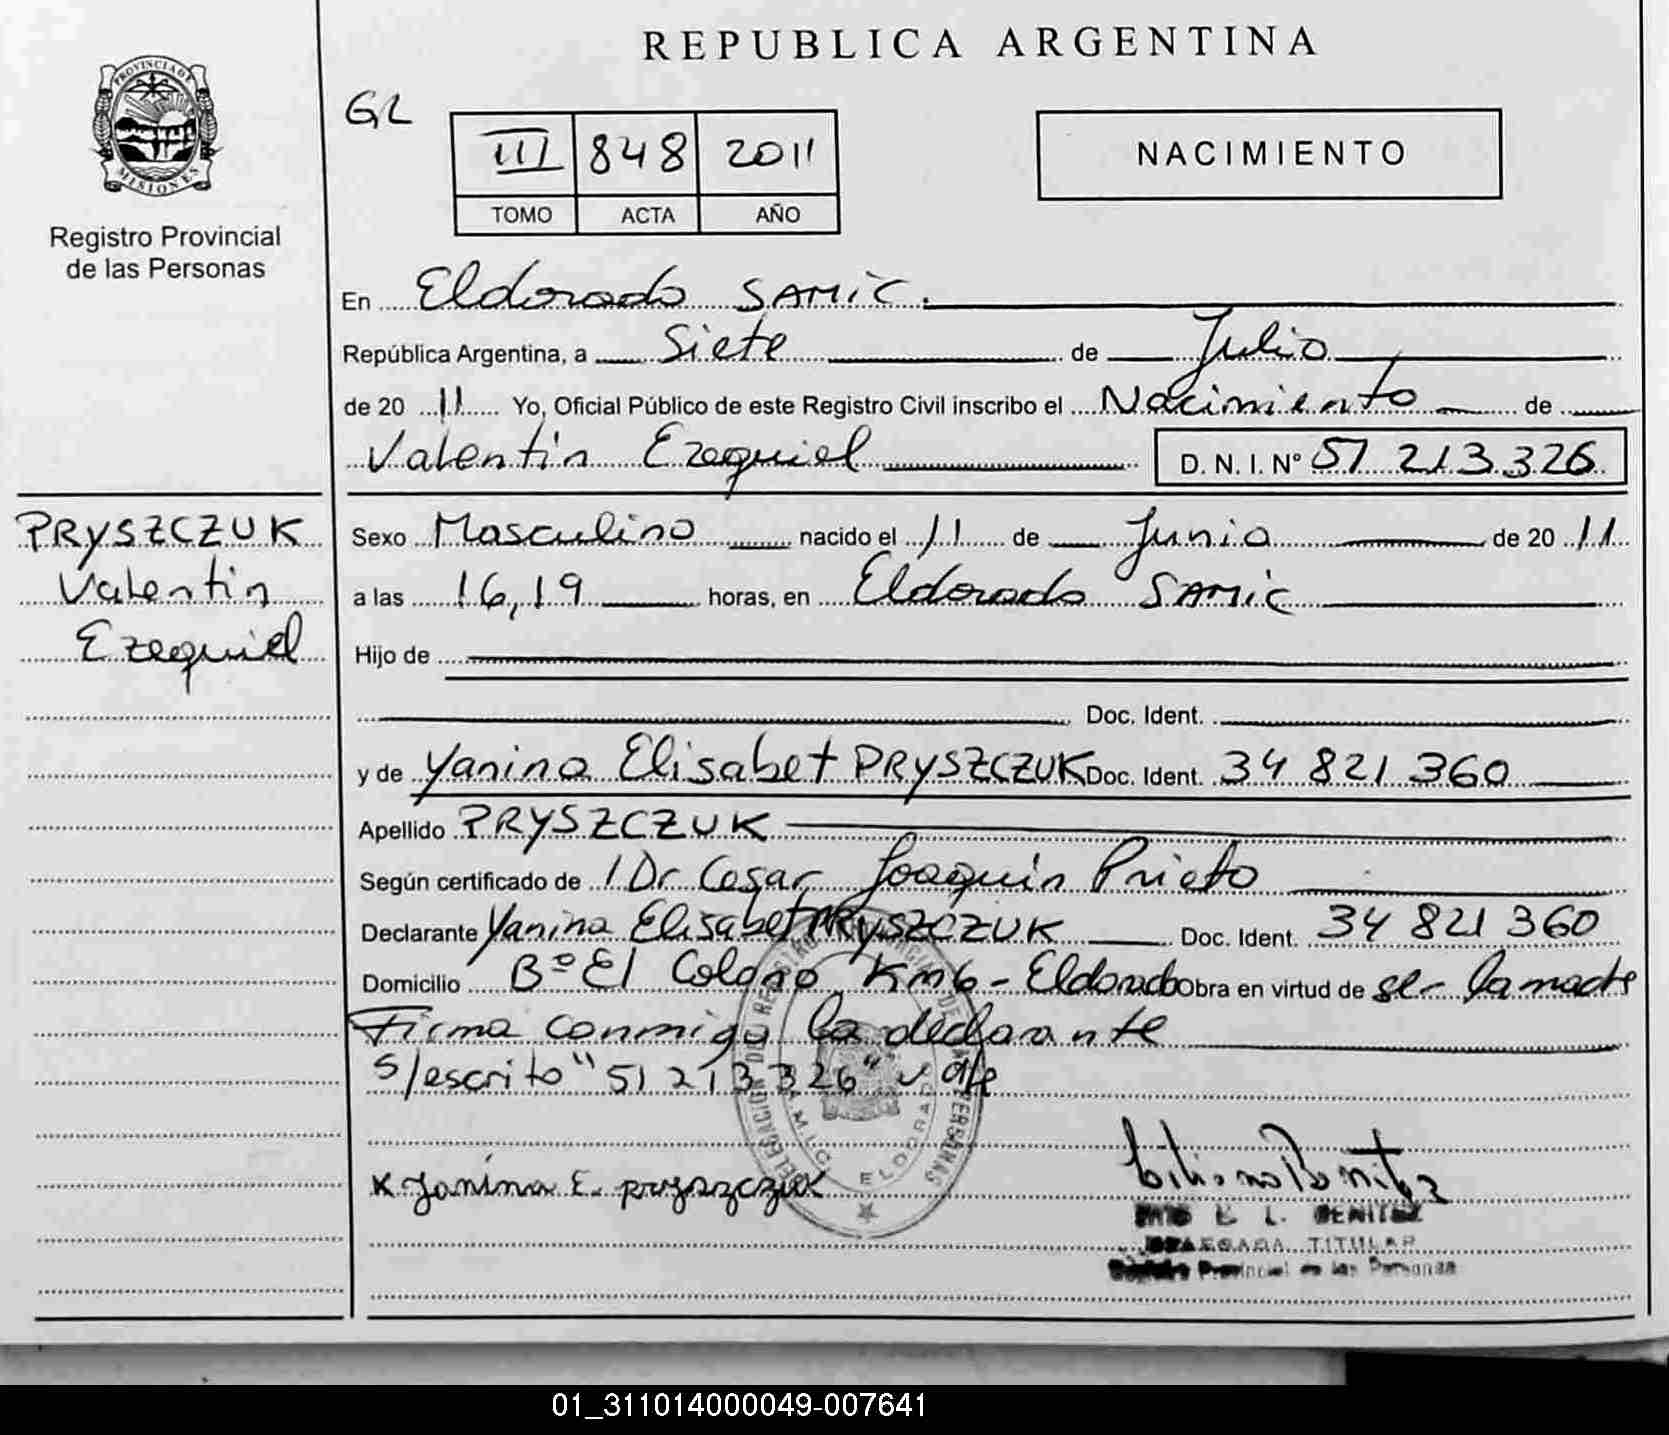 REPUBLICA ARGENTINA
PROVINCIA DE MISIONES
Registro Provincial
de las Personas
GL
III 848 2011
TOMO ACTA AÑO
NACIMIENTO
En Eldorado SAMIC.
República Argentina, a Siete de Julio
de 20 11 Yo, Oficial Público de este Registro Civil inscribo el Nacimiento de
Valentin Ezequiel D. N. I. Nº 51 213 326
PRYSZCZUK
Valentin
Ezequiel
Sexo Masculino nacido el 11 de Junio de 20 11
a las 16,19 horas, en Eldorado SAMIC
Hijo de
Doc. Ident.
y de Yanina Elisabet PRYSZCZUK Doc. Ident. 34 821 360
Apellido PRYSZCZUK
Según certificado de / Dr Cesar Joaquin Prieto
Declarante Yanina Elisabet PRYSZCZUK Doc. Ident. 34 821 360
Domicilio Bº El Colono Km6 - Eldorado Obra en virtud de ser la madre
Firma conmigo la declarante
s/escrito "51 213 326" vale
DELEGACION DEL REGISTRO PROVINCIAL DE LAS PERSONAS
S.A.M.I.C. ELDORADO
x Yanina E. pryszczuk
B. L. BENITEZ
DELEGADA TITULAR
Registro Provincial de las Personas
01_311014000049-007641